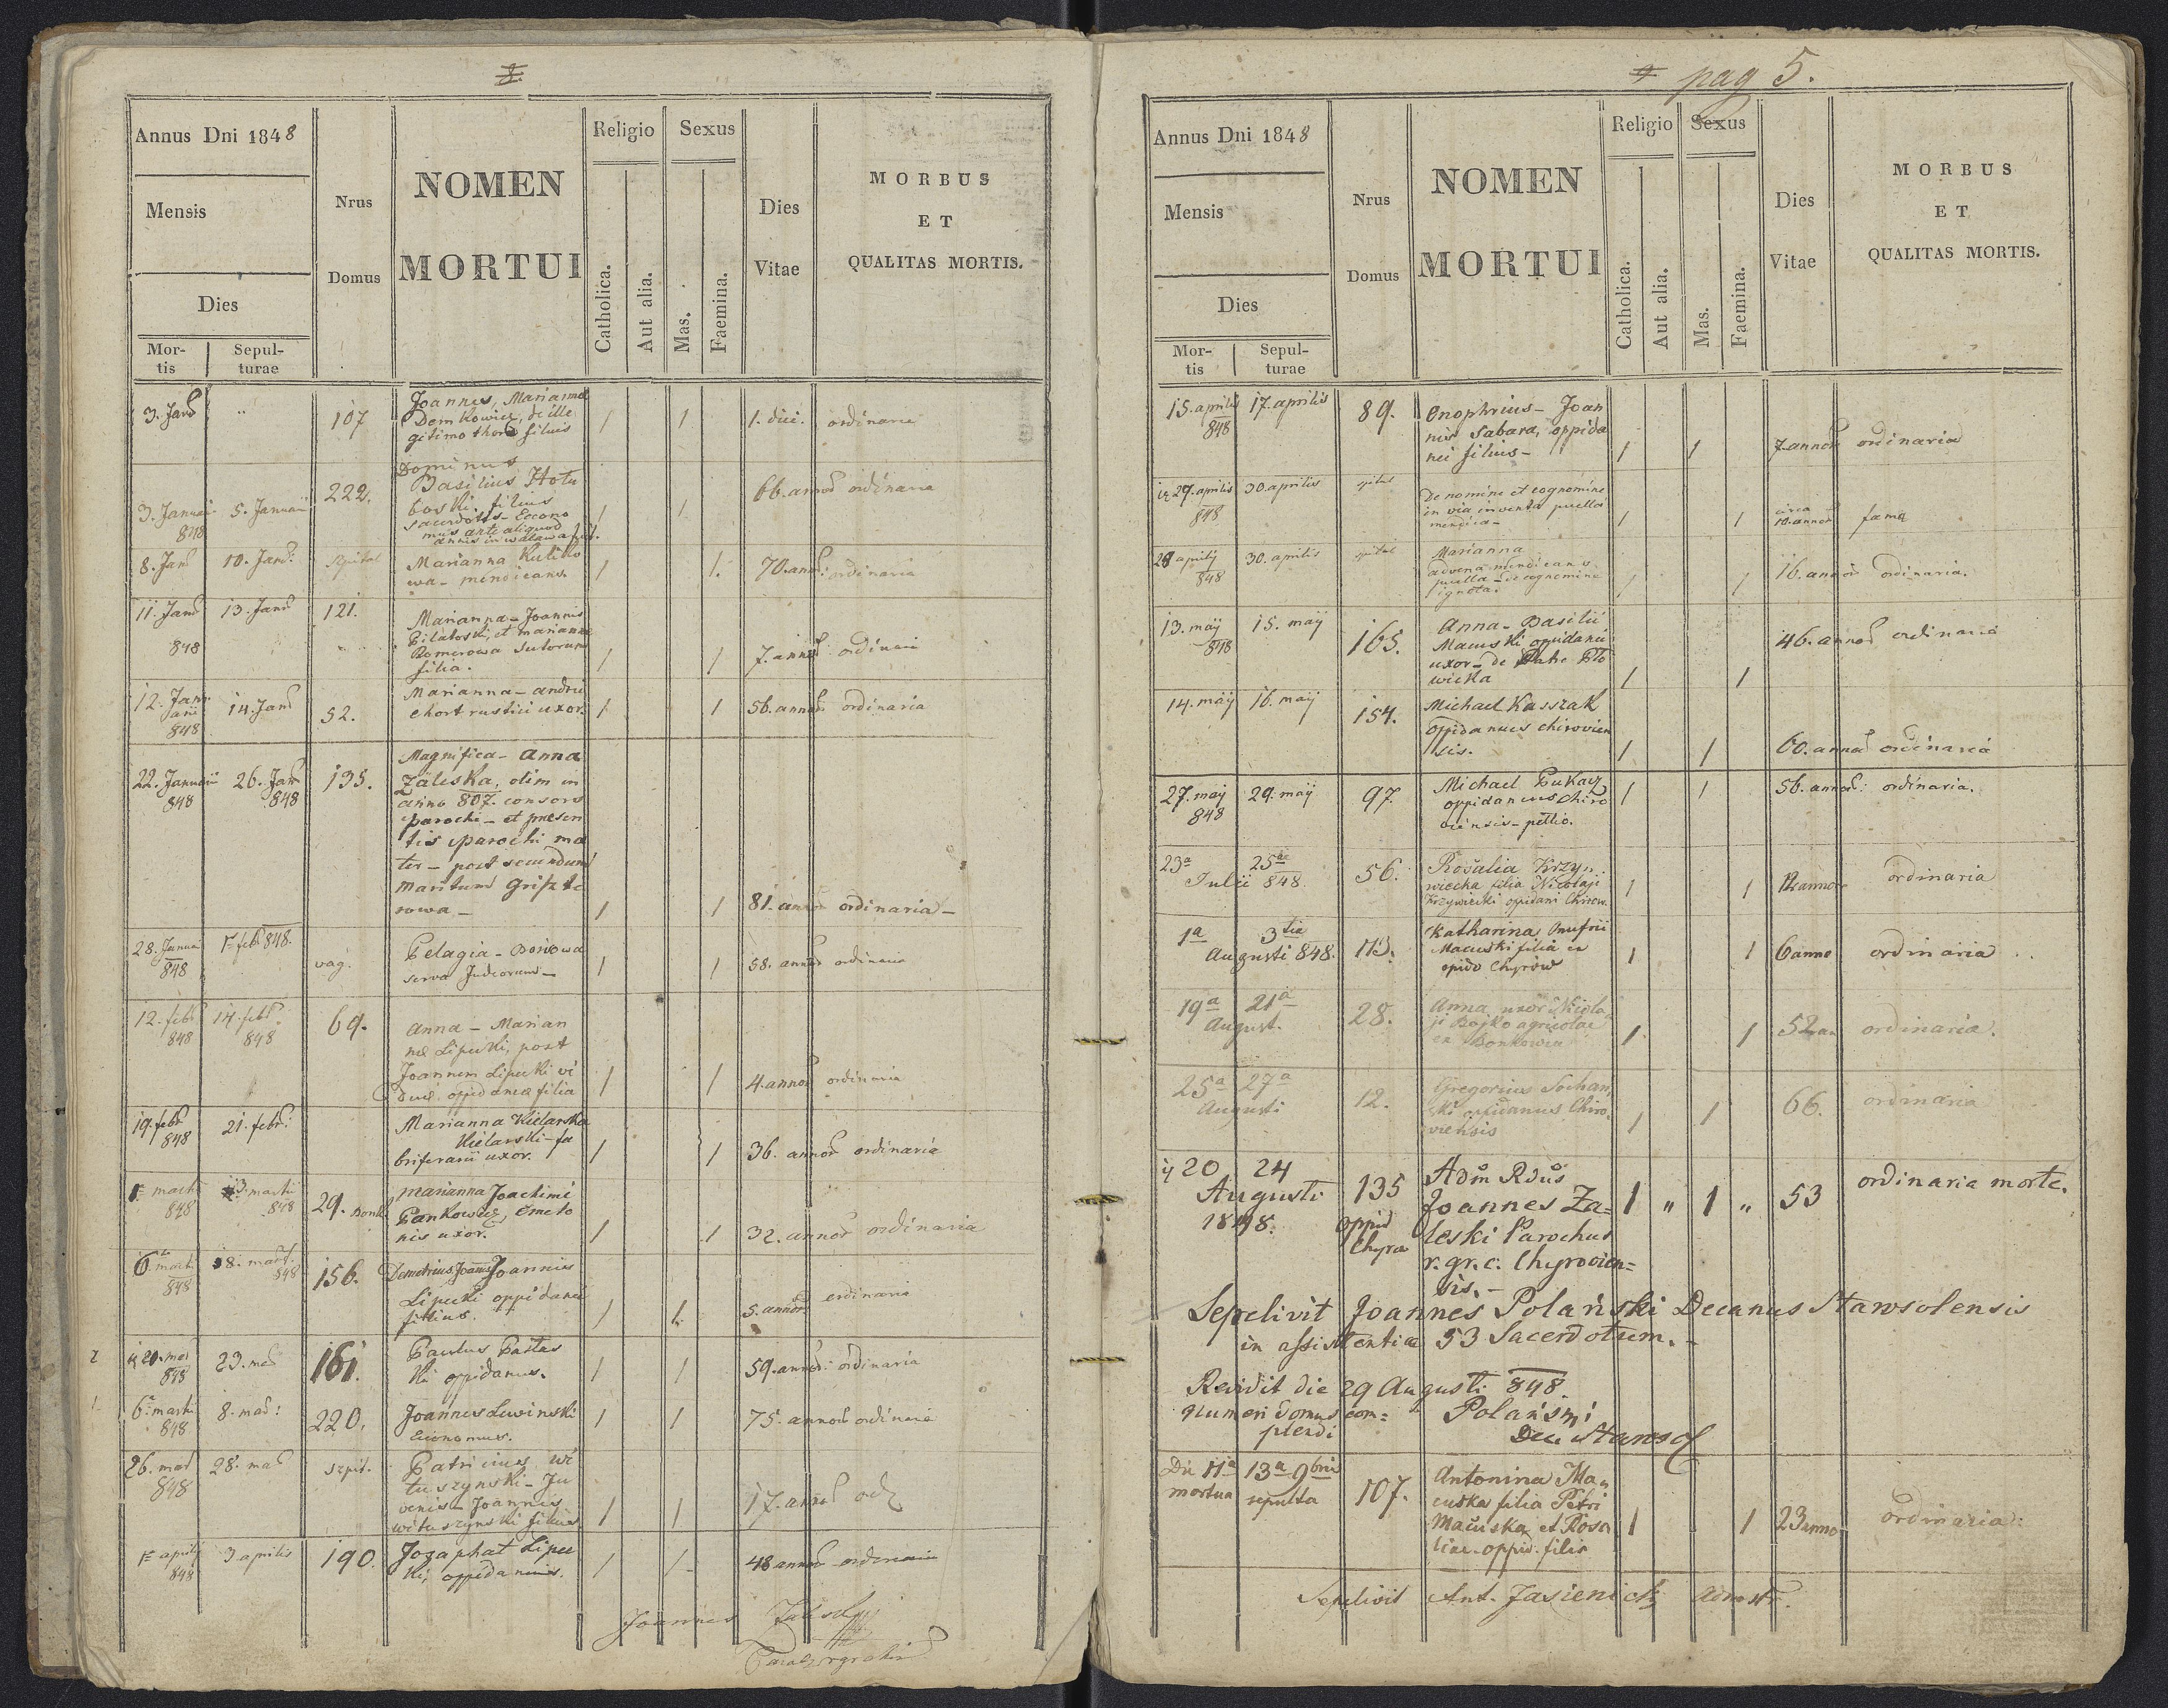 Annus Dni 1848
Mensis
Dies
Mor-
tis
Sepul-
turae
Nrus
Domus
NOMEN
MORTUI
Religio
Catholica.
Aut alia.
Sexus
Mas.
Faemina.
Dies
Vitae
MORBUS
ET
QUALITAS MORTIS.
3. Jan
107
Joannes, Marianna
Domkowicz, de ille
gitimo thoro filius
1 1
1. diei. ordinaria
3. Januarii 5. Januarii
848
222.
Dominus
Basilius
boski. filius
sacerdotis - Econo
mus ante aliquod
annis in
1 1
66. annor ordinaria
8. Jan 10. Jan:
Szpital
Marianna Kuliko
wa - mendicans.
1 1.
70. ann: ordinaria
11. Jan 13. Jan
848
121.
Marianna - Joannis
Pilatoski, et marianna
Romerowa Sutorum
filia.
1 1
7. annor ordinari
12. Janu
arii
848
14. Jan
52.
Marianna - andrii
Chort rustici uxor.
1 1
56. annor ordinaria
22. Januarii 26. Jan
848 848
135.
Magnifica - Anna
Zaleska, olim in
anno 807. consors
parochi - et praesen
tis parochi ma
ter - post secundum
maritum
sowa -
1 1
81. annor ordinaria -
28. Janua 1 feb 848.
848
vag.
Pelagia -
serva Judeorum -
1 1
58. annor ordinaria
12. feb 14. feb
848 848
69.
Anna - Marian
nae Lipecki, post
Joannem Lipecki vi
duae oppidanae filia
1 1
4. annor ordinaria
19. febr 21. febr:
848
Marianna Kielarska
Kielarski - fa
briferarii uxor.
1 1
36. annor ordinaria
1 martii 3. martii
848 848
29. Bonk
Marianna Joachimi
Pankowicz, Cmeto
nis uxor.
1 1
32. annor ordinaria
6 marti 8. mart
848 848
156.
Demetrius Joannis Joannis
Lipecki oppidanei
filius.
1 1.
5. annor ordinaria
2
21. mar 23. mar
848
161.
Paulus Pastas
ki oppidanus.
1 1
59. annor: ordinaria
1
6. martii 8. mar:
848
220.
Joannes Lewinski
Economus.
1 1
75. annor ordinaria
26. mar 28. mar
848
szpit.
Patricius Wi
tuszynski - Ju
venis - Joannis
Wituszynski filius
1 1
17. annor
1 aprilis 3 aprilis
848
190.
Jozaphat Lipec
ki, oppidaneus.
1 1
48 annor ordinaria
Joannes
pag 5.
Annus Dni 1848
Mensis
Dies
Mor-
tis
Sepul-
turae
Nrus
Domus
NOMEN
MORTUI
Religio
Catholica.
Aut alia.
Sexus
Mas.
Faemina.
Dies
Vitae
MORBUS
ET
QUALITAS MORTIS.
15. aprilis 17. aprilis
848
89.
Onophrius - Joan
nis Sabara, oppida
nei filius -
1 1
7 annor ordinaria
29. aprilis 30. aprilis
848
spital
De nomine et cognomine
in via inventa puella
mendica -
1 1
circa
10. annor fame
28 aprilis 30. aprilis
848
spital
Marianna
advena mendicans
puella - de cognomine
ignota.
1 1
16. annor ordinaria.
13. maij 15. maij
848
165.
Anna - Basilii
Macuski oppidanei
uxor - de
wicka
1 1
46. annor ordinaria
14. maij 16. maij
154.
Michael Kaszzak
oppidanues chirovien
sis.
1 1
60. annor ordinaria
27. maij 29. maij
848
97.
Michael Lukacz
oppidaneus Chiro
viensis - pellio.
1 1
56. annor: ordinaria.
23a 25ae
Julii 848.
56.
Rosalia Krzy
wiecka filia Nicolaji
Krzywiecki oppidani Chirow.
1 1
12 anno ordinaria
1a 3tia
Augusti 848.
113.
Katharina Onufrii
Macuski filia ex
opido Chyrów
1 1
6 anno ordinaria
19a 21a
August.
28.
Anna uxor Nicola
ji Bojko agricolae
ex Bonkowia
1 1
52 an ordinaria.
25a 27a
Augusti
12.
Gregorius Sochan
ski oppidanus Chiro
viensis
1 1
66. ordinaria
20 24
Augusti
1848.
135
oppid
Chyrov
Adm Rdus
Joannes Za=
leski Parochus
r. gr. c. Chyrovien=
sis. -
1 " 1 "
53
ordinaria morte.
Sepelivit Joannes Polański Decanus Starosolensis
in assistentia 53 Sacerdotum. -
Revidit die 29 Augusti 848.
Numeri domus com=
plendi
Polański
Dec Starosol
Die 11a 13a 9bris
mortua sepulta
107.
Antonina Ma
cuska filia Petri
Macuska et Rosa
liae. oppid. filia
1 1
23 anno ordinaria.
Sepelivit Ant. Jasienicki Admstr.